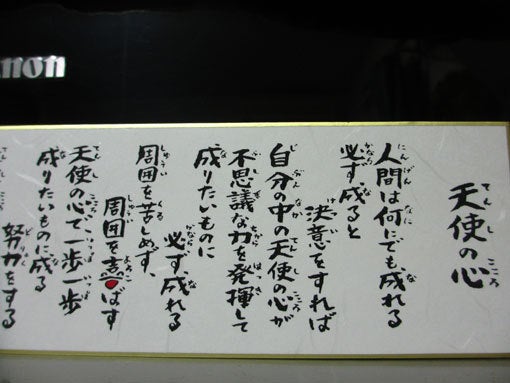 non
天使の心
人間は何にでも成れる
必ず成ると
決意をすれば
自分の中の天使の心が
不思議な力を発揮して
成りたいものに
必ず、成れる
周囲を苦しめず
周囲を喜ばす
天使の心で一歩一歩
成りたいものに成る
努力をする